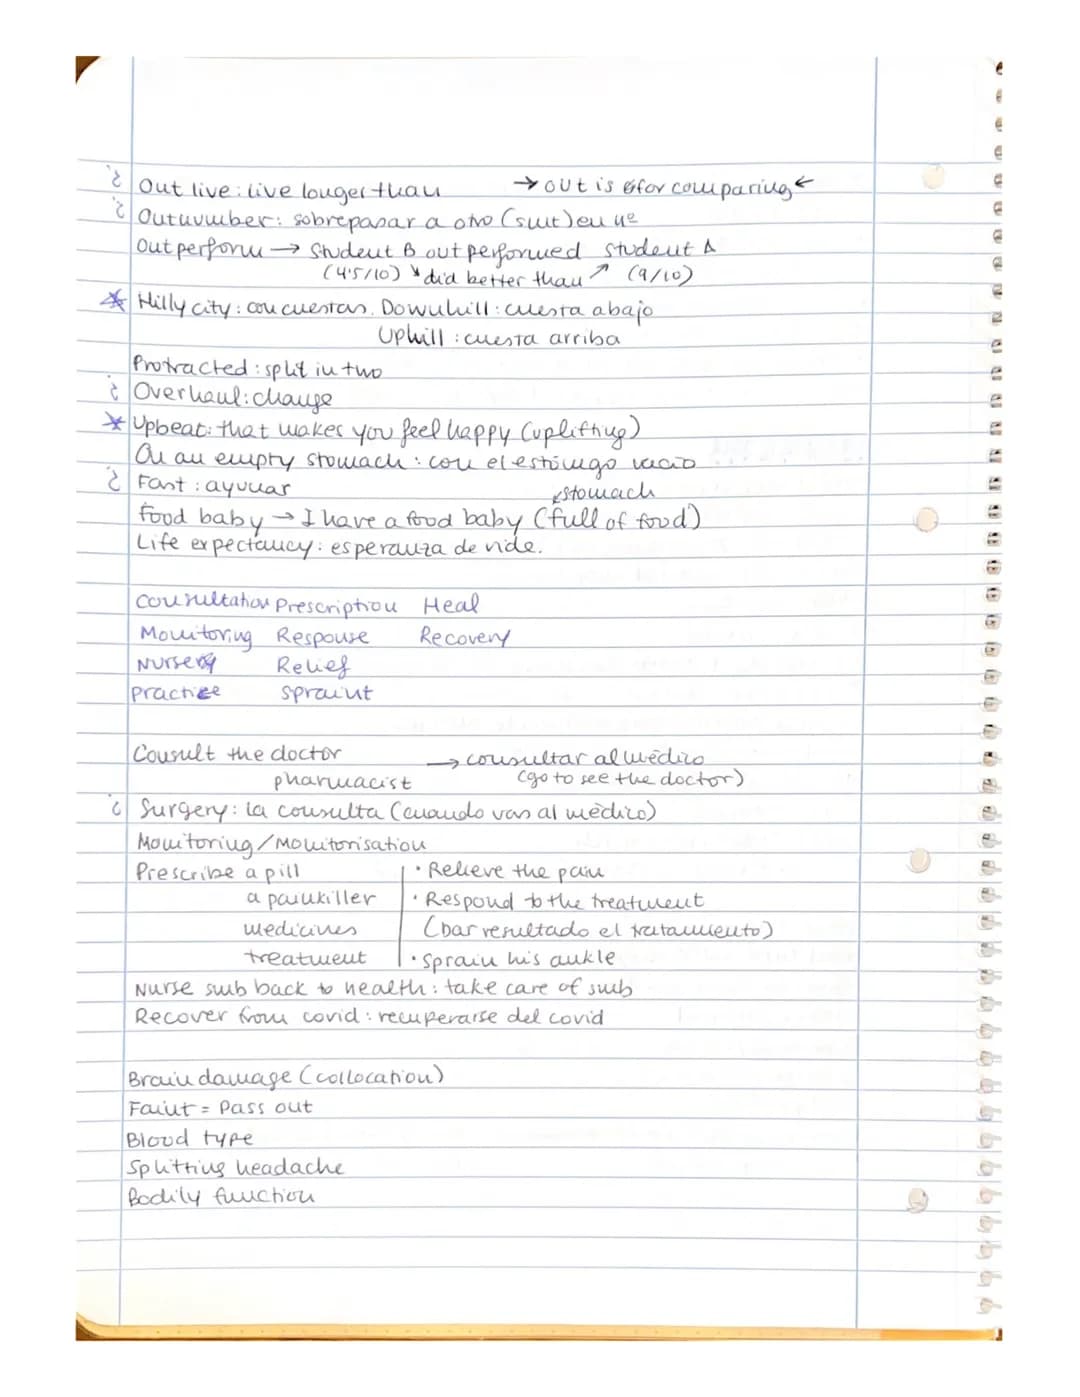 ¿ Out live: live longer than → out is for comparing ←
¿ Outnumber: sobrepasar a otro (smt) en nº
Outperform → Student B outperformed student A
(4'5/10) did better than (9/10)
Hilly city: con cuestas. Downhill: cuesta abajo
Uphill: cuesta arriba
Protracted: split in two
¿ Overhaul: change
Upbeat: that makes you feel happy (uplifting)
On an empty stomach: con el estómago vacío
¿ Fast: ayunar stomach
Food baby → I have a food baby (full of food)
Life expectancy: esperanza de vide.
Consultation Prescription Heal
Monitoring Response Recovery
Nursery Relief
Practice Spraint
Consult the doctor → consultar al médico
pharmacist (go to see the doctor)
¿ Surgery: la consulta (cuando vas al médico)
Monitoring/Monitorisation
Prescribe a pill · Relieve the pain
a painkiller · Respond to the treatment
medicines (bar resultado el tratamiento)
treatment · sprain his ankle
Nurse smb back to health: take care of smb
Recover from covid: recuperarse del covid
Brain damage (collocation)
Faint = Pass out
Blood type
Splitting headache
Bodily function